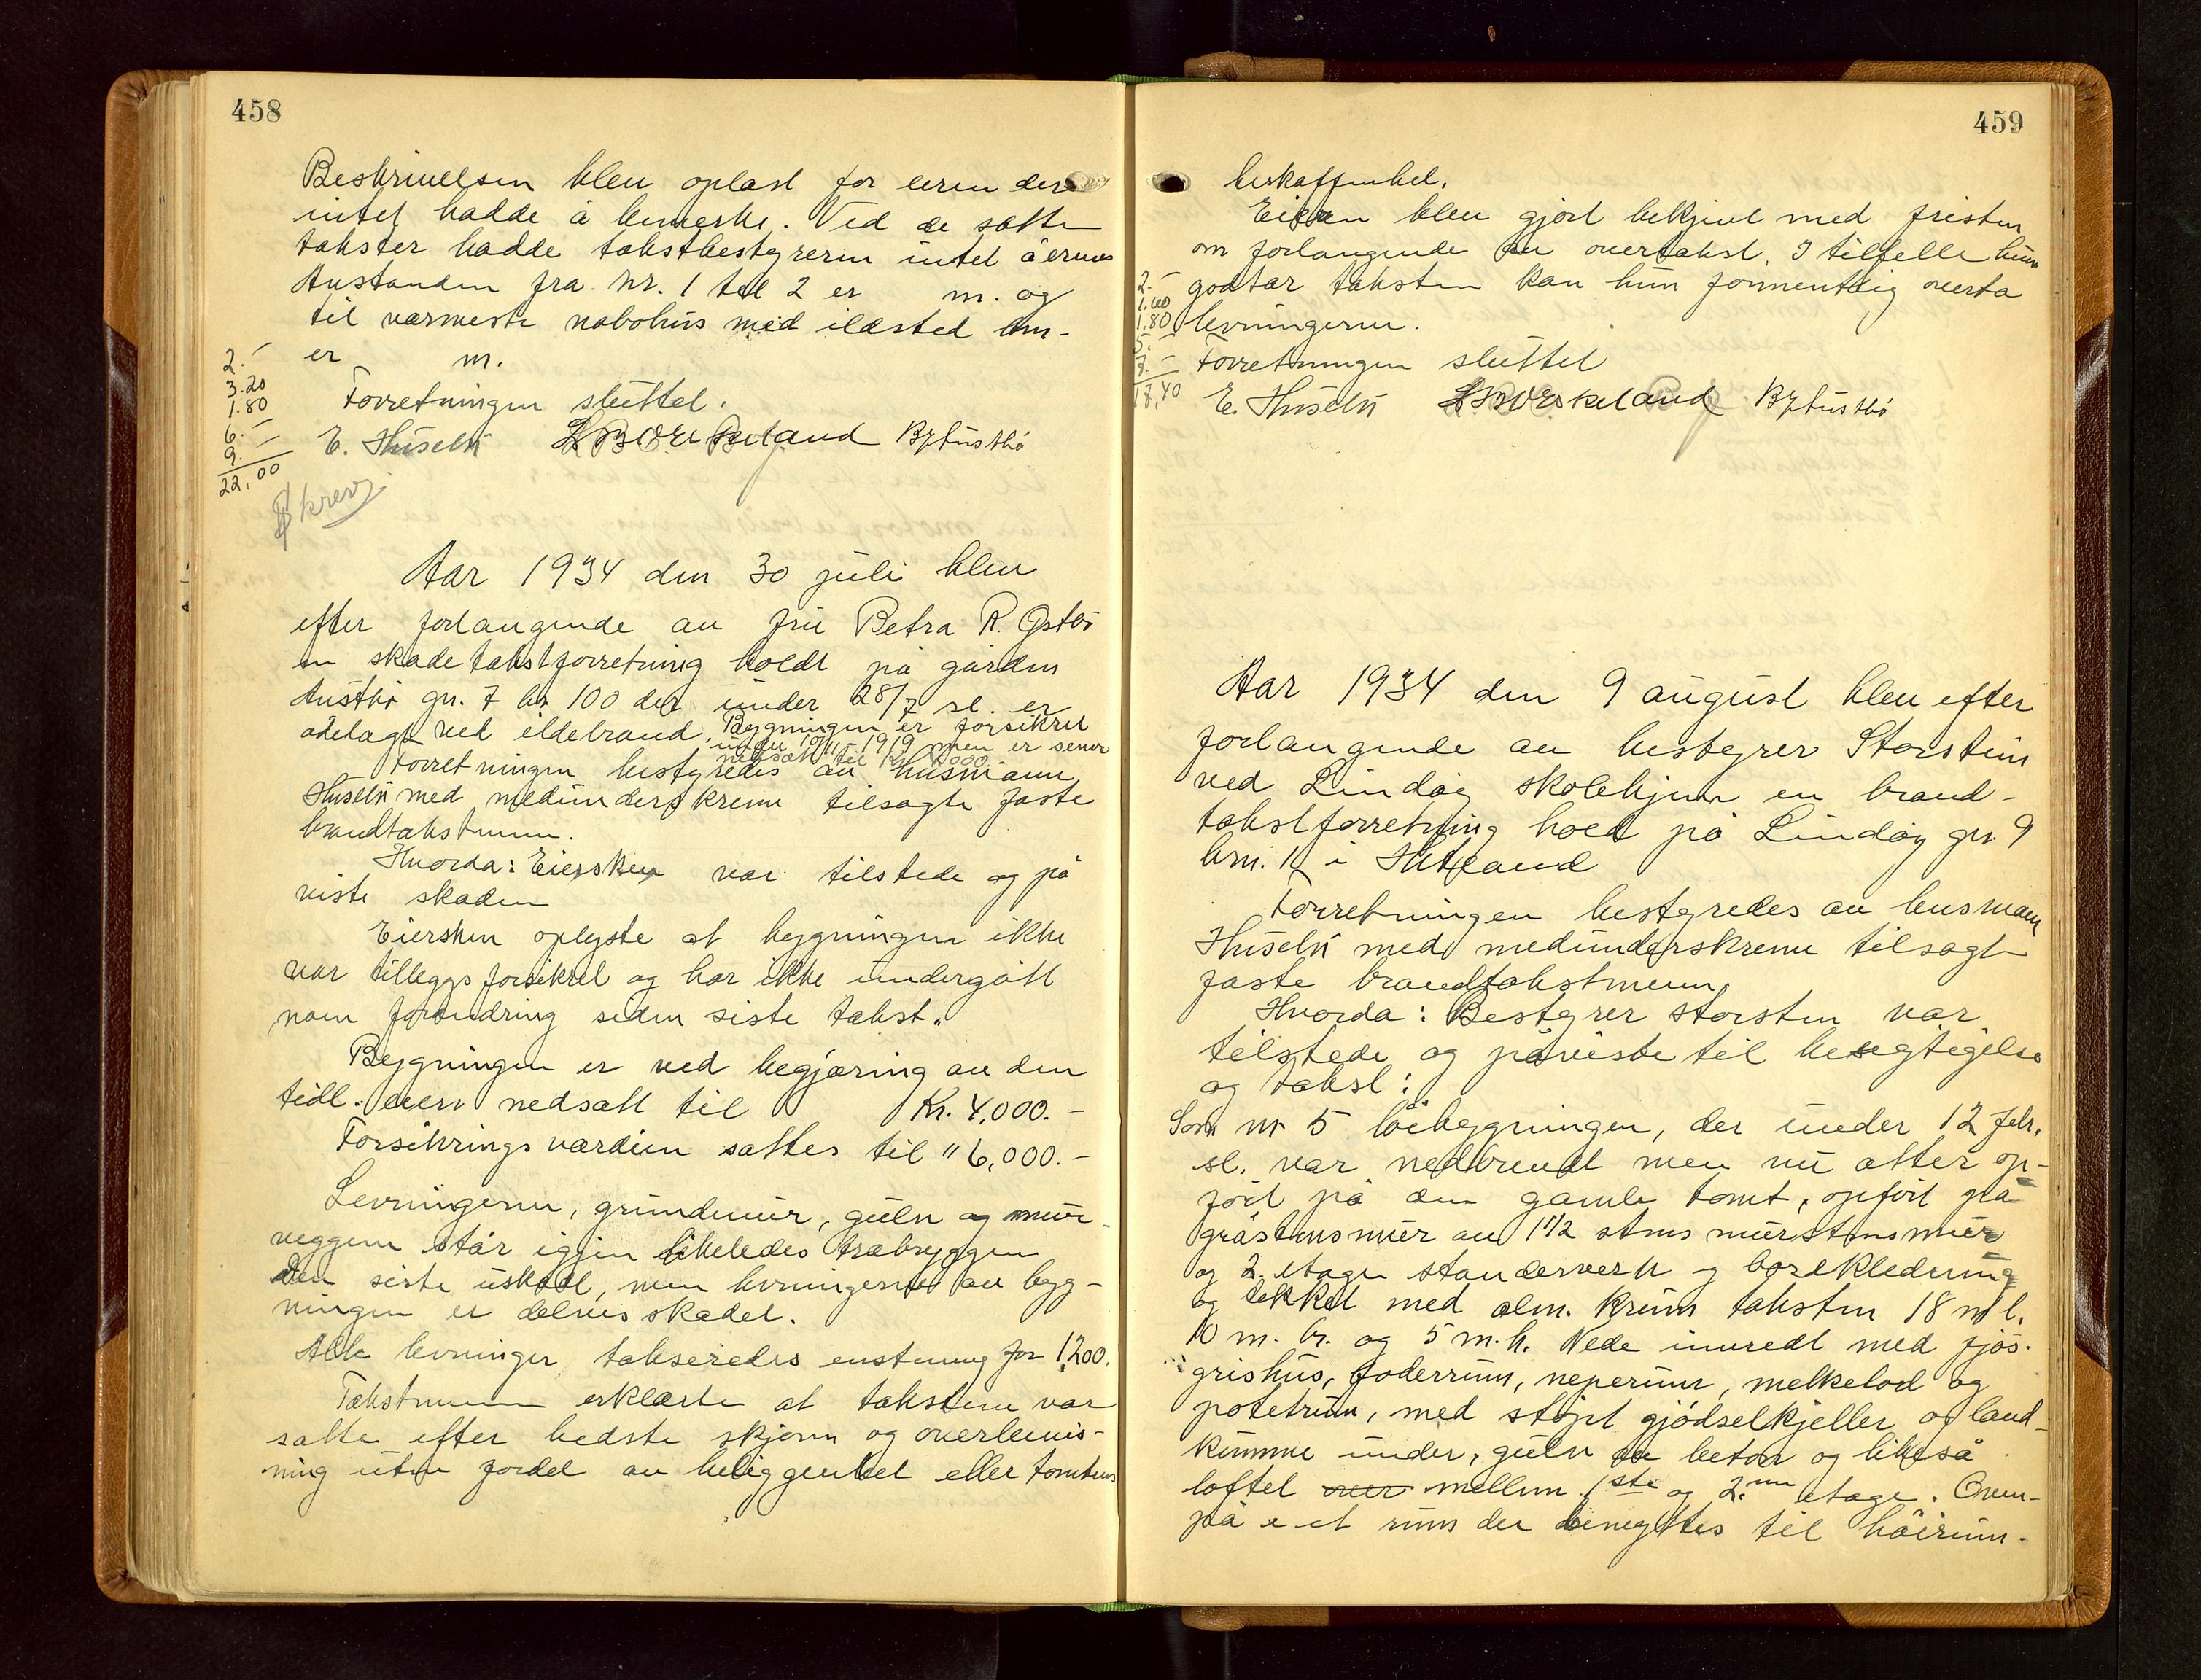 458
Beskrivelsen blev oplæst for eieren der
intet hadde å bemerke. Ved de satte
takster hadde takstbestyreren intet å erindre
Avstanden fra nr. 1 til 2 er m. og
til nærmeste nabohus med ildsted
er m.
2.-
3.20
1.80
6.-
9.-
22.00
Forretningen sluttet.
E. Husebø
Skrevj
Aar 1934 den 30 juli blev
efter forlangende av fru Petra R. Østbø
en skadetakstforretning holdt på gården
Austbø gn. 7 bn 100 der under 28/7 sl. er
ødelagt ved ildebrand. Bygningen er forsikret
under 10/11-1919 men er senere
nedsatt til Kr. 4000
Forretningen bestyredes av lensmann
Husebø med medunderskrevne tilsagte faste
brandtakstmenn.
Hvorda: Eiersken var tilstede og på
viste skaden
Eiersken oplyste at bygningen ikke
var tilleggsforsikret og har ikke undergått
noen forandring siden siste takst.
Bygningen er ved begjæring av den
tidl. eier nedsatt til Kr. 4,000.-
Forsikringsværdien sattes til " 6,000.-
Levningerne, grundmur, gulv og mur-
veggene står igjen likeledes træbryggen
den siste uskadt, men levningerne av byg-
ningen er delvis skadet.
Alle levninger takseredes enstemmig for 1,200.
Takstmenn erklærte at takstene var
satte efter bedste skjønn og overbevis-
ning uten fordel av beliggenhet eller tomtens
459
beskaffenhet.
Eieren blev gjort bekjent med fristen
om forlangende av overtakst. I tilfelle hun
godtar taksten kan hun formentlig overta
levningerne.
2.-
1.60
1.80
5.-
7.-
17,40
Forretningen sluttet
E. Husebø
Aar 1934 den 9 august blev efter
forlangende av bestyrer Storstein
ved Lindøy skolehjem en brand-
takstforretning holdt på Lindøy gn. 9
bn. 1 i Hetland
Forretningen bestyredes av lensmann
Husebø med medunderskrevne tilsagte
faste brandtakstmenn.
Hvorda: Bestyrer Storsten var
tilstede og påviste til besigtigelse
og takst:
Som nr 5 løebygningen, der under 12 febr.
sl. var nedbrendt men nu atter op-
ført på den gamle tomt, opført på
gråstensmur av 1 1/2 stens murstensmur
og 2. etage standerverk og bordkledning
og tekket med alm. krum taksten 18 m l.
10 m. br. og 5 m. h. Nede innredt med fjøs.
grishus, foderrum, neperum, melkebod og
potetrum, med støpt gjødselkjeller og land-
kumme under, gulv av beton og likeså
loftet over mellem 1ste og 2.nen etage. Oven-
på er et rum der benyttes til høirum.